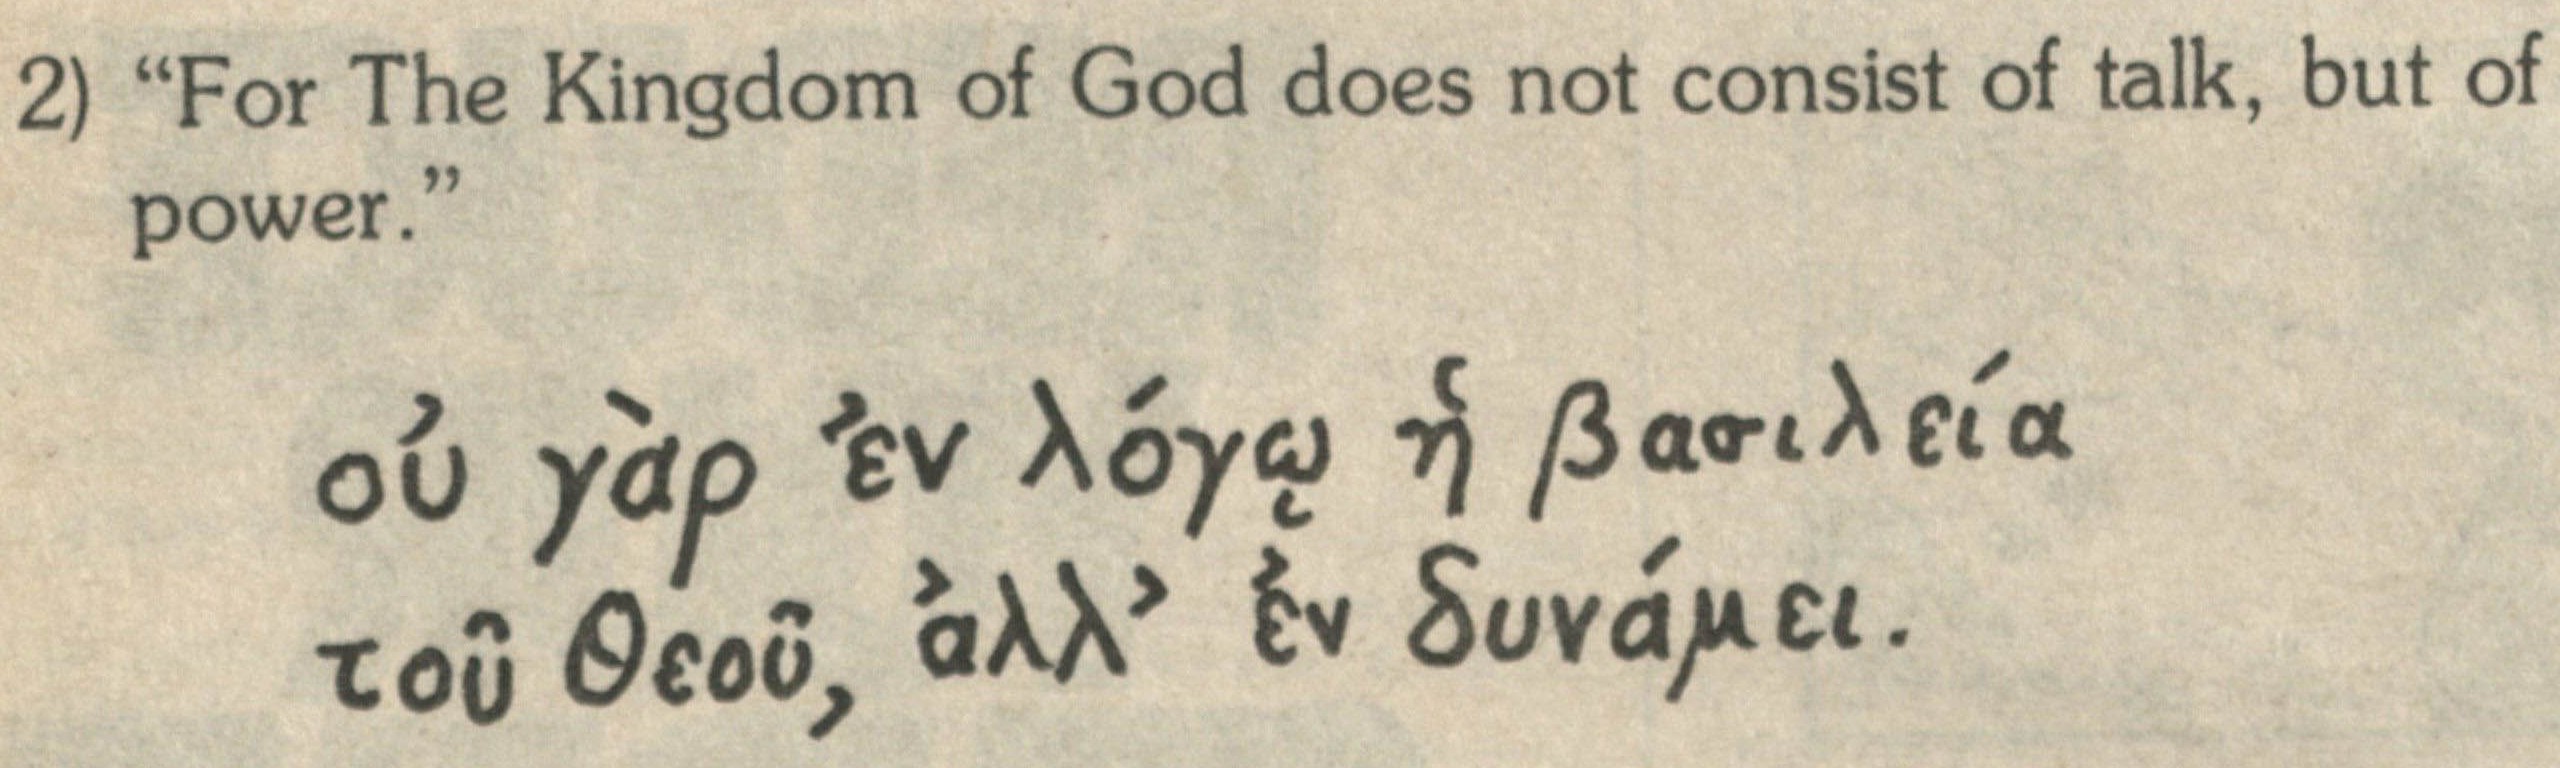 2) “For The Kingdom of God does not consist of talk, but of
power.”
οὐ γὰρ ἐν λόγῳ ἡ βασιλεία
τοῦ Θεοῦ, ἀλλ’ ἐν δυνάμει.